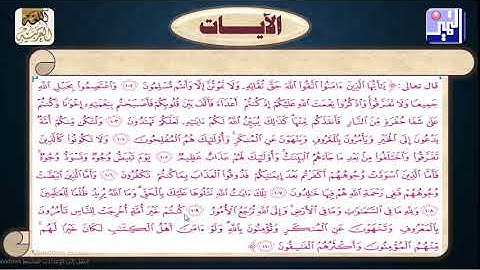 اللغة العربية
الآيات
التميز
قال تعالى: ﴿ يَٰٓأَيُّهَا ٱلَّذِينَ ءَامَنُوا۟ ٱتَّقُوا۟ ٱللَّهَ حَقَّ تُقَاتِهِۦ وَلَا تَمُوتُنَّ إِلَّا وَأَنتُم مُّسْلِمُونَ ١٠٢ وَٱعْتَصِمُوا۟ بِحَبْلِ ٱللَّهِ
جَمِيعًا وَلَا تَفَرَّقُوا۟ وَٱذْكُرُوا۟ نِعْمَتَ ٱللَّهِ عَلَيْكُمْ إِذْ كُنتُمْ أَعْدَآءً فَأَلَّفَ بَيْنَ قُلُوبِكُمْ فَأَصْبَحْتُم بِنِعْمَتِهِۦٓ إِخْوَٰنًا وَكُنتُمْ
عَلَىٰ شَفَا حُفْرَةٍ مِّنَ ٱلنَّارِ فَأَنقَذَكُم مِّنْهَا كَذَٰلِكَ يُبَيِّنُ ٱللَّهُ لَكُمْ ءَايَٰتِهِۦ لَعَلَّكُمْ تَهْتَدُونَ ١٠٣ وَلْتَكُن مِّنكُمْ أُمَّةٌ
يَدْعُونَ إِلَى ٱلْخَيْرِ وَيَأْمُرُونَ بِٱلْمَعْرُوفِ وَيَنْهَوْنَ عَنِ ٱلْمُنكَرِ وَأُو۟لَٰٓئِكَ هُمُ ٱلْمُفْلِحُونَ ١٠٤ وَلَا تَكُونُوا۟ كَٱلَّذِينَ
تَفَرَّقُوا۟ وَٱخْتَلَفُوا۟ مِنۢ بَعْدِ مَا جَآءَهُمُ ٱلْبَيِّنَٰتُ وَأُو۟لَٰٓئِكَ لَهُمْ عَذَابٌ عَظِيمٌ ١٠٥ يَوْمَ تَبْيَضُّ وُجُوهٌ وَتَسْوَدُّ وُجُوهٌ
فَأَمَّا ٱلَّذِينَ ٱسْوَدَّتْ وُجُوهُهُمْ أَكَفَرْتُم بَعْدَ إِيمَٰنِكُمْ فَذُوقُوا۟ ٱلْعَذَابَ بِمَا كُنتُمْ تَكْفُرُونَ ١٠٦ وَأَمَّا ٱلَّذِينَ ٱبْيَضَّتْ
وُجُوهُهُمْ فَفِى رَحْمَةِ ٱللَّهِ هُمْ فِيهَا خَٰلِدُونَ ١٠٧ تِلْكَ ءَايَٰتُ ٱللَّهِ نَتْلُوهَا عَلَيْكَ بِٱلْحَقِّ وَمَا ٱللَّهُ يُرِيدُ ظُلْمًا لِّلْعَٰلَمِينَ
١٠٨ وَلِلَّهِ مَا فِى ٱلسَّمَٰوَٰتِ وَمَا فِى ٱلْأَرْضِ وَإِلَى ٱللَّهِ تُرْجَعُ ٱلْأُمُورُ ١٠٩ كُنتُمْ خَيْرَ أُمَّةٍ أُخْرِجَتْ لِلنَّاسِ تَأْمُرُونَ
بِٱلْمَعْرُوفِ وَتَنْهَوْنَ عَنِ ٱلْمُنكَرِ وَتُؤْمِنُونَ بِٱللَّهِ وَلَوْ ءَامَنَ أَهْلُ ٱلْكِتَٰبِ لَكَانَ خَيْرًا لَّهُم
مِّنْهُمُ ٱلْمُؤْمِنُونَ وَأَكْثَرُهُمُ ٱلْفَٰسِقُونَ ١١٠ ﴾